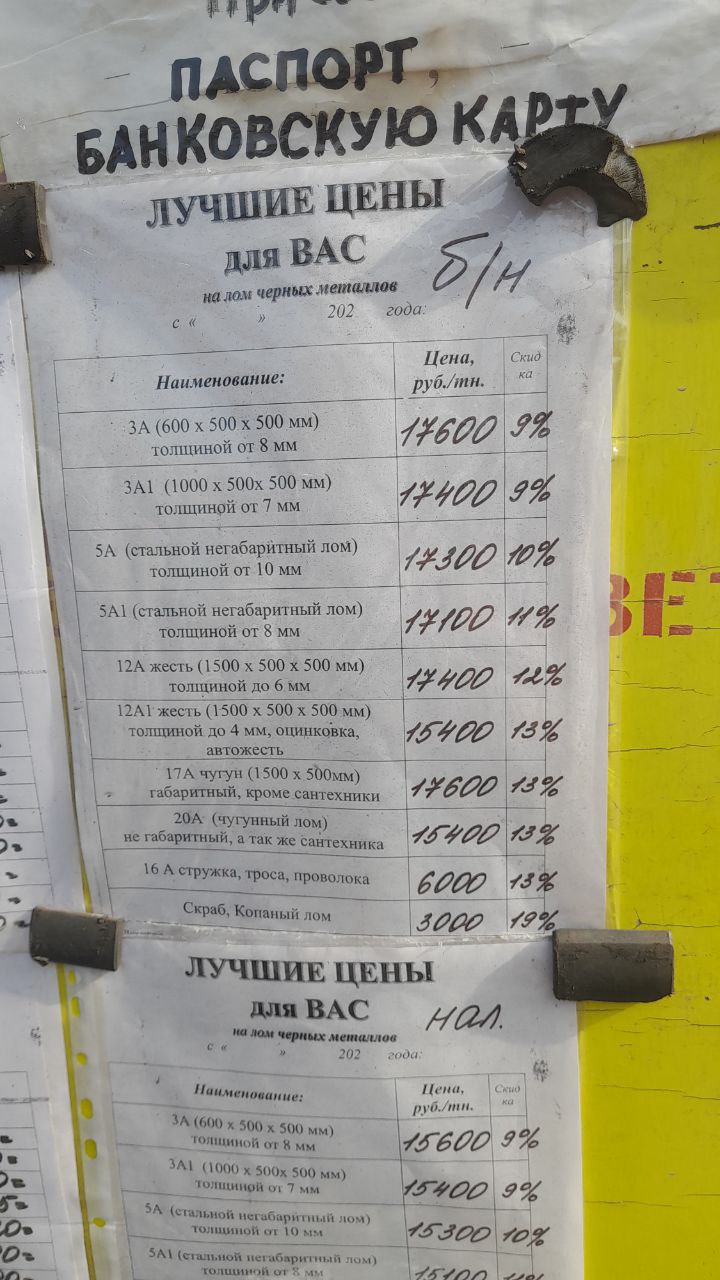 ПАСПОРТ,
БАНКОВСКУЮ КАРТУ
ЛУЧШИЕ ЦЕНЫ
для ВАС
б/н
на лом черных металлов
с « » 202 года:
Наименование: Цена, руб./тн. Скид ка
3А (600 х 500 х 500 мм)
толщиной от 8 мм 17600 9%
3А1 (1000 х 500х 500 мм)
толщиной от 7 мм 17400 9%
5А (стальной негабаритный лом)
толщиной от 10 мм 17300 10%
5А1 (стальной негабаритный лом)
толщиной от 8 мм 17100 11%
12А жесть (1500 х 500 х 500 мм)
толщиной до 6 мм 17400 12%
12А1 жесть (1500 х 500 х 500 мм)
толщиной до 4 мм, оцинковка,
автожесть 15400 13%
17А чугун (1500 х 500мм)
габаритный, кроме сантехники 17600 13%
20А (чугунный лом)
не габаритный, а так же сантехника 15400 13%
16 А стружка, троса, проволока 6000 13%
Скраб, Копаный лом 3000 19%
ЛУЧШИЕ ЦЕНЫ
для ВАС
нал.
на лом черных металлов
с « » 202 года:
Наименование: Цена, руб./тн. Скид ка
3А (600 х 500 х 500 мм)
толщиной от 8 мм 15600 9%
3А1 (1000 х 500х 500 мм)
толщиной от 7 мм 15400 9%
5А (стальной негабаритный лом)
толщиной от 10 мм 15300 10%
5А1 (стальной негабаритный лом)
толщиной от 8 мм 15100 11%
ВЕТ